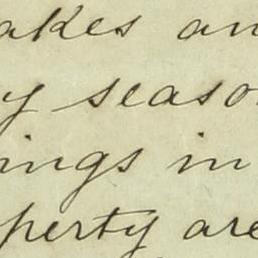 akes an
y seaso
ings in
perty are